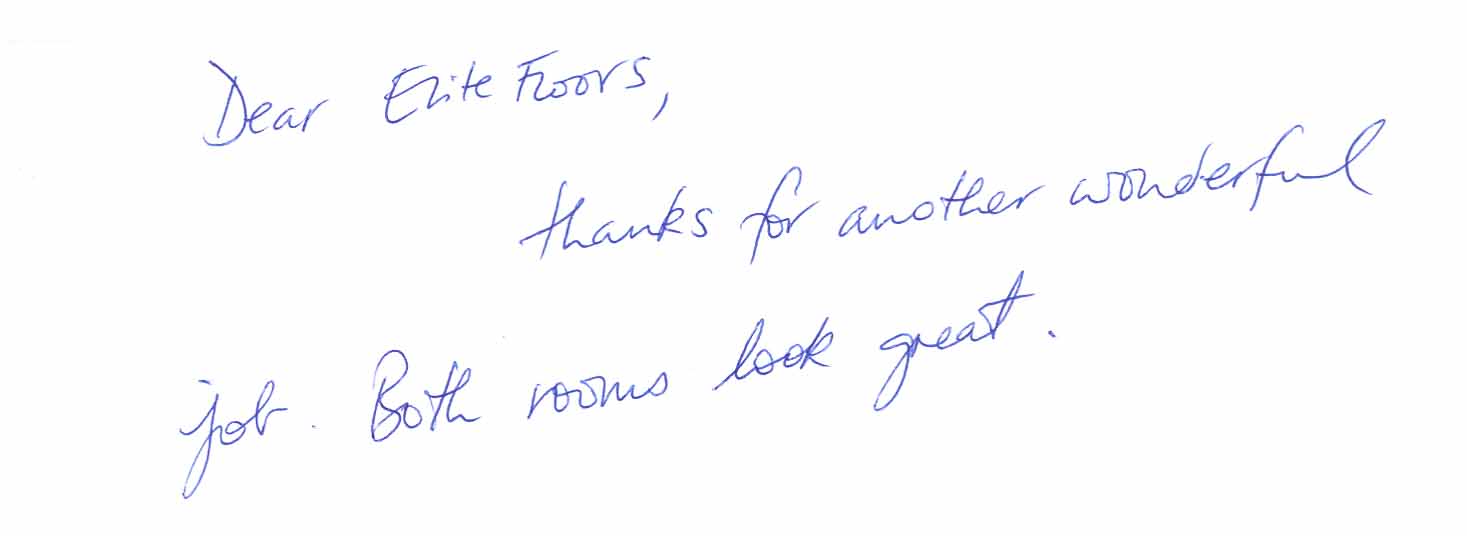 Dear Elite Floors,
thanks for another wonderful
job. Both rooms look great.